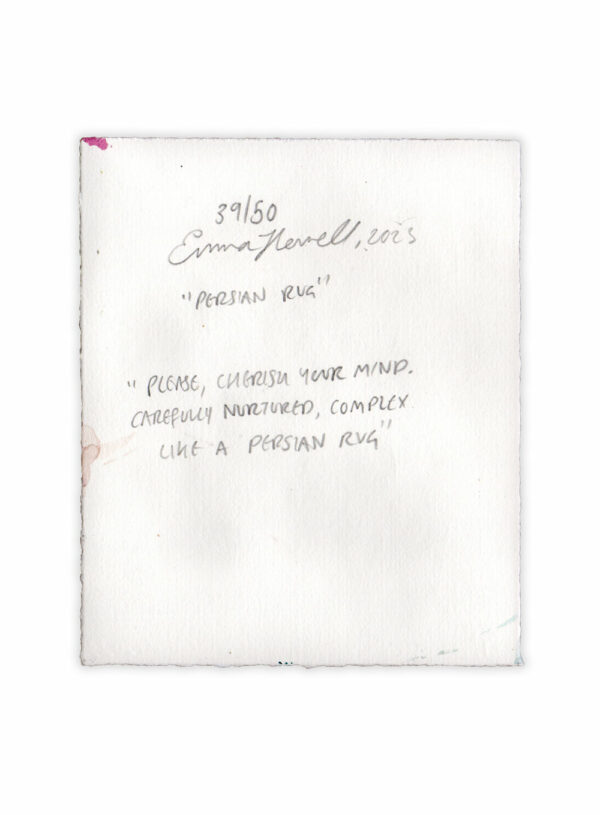 39/50
Emma Howell, 2023
"PERSIAN RUG"
"PLEASE, CHERISH YOUR MIND.
CAREFULLY NURTURED, COMPLEX
LIKE A PERSIAN RUG"